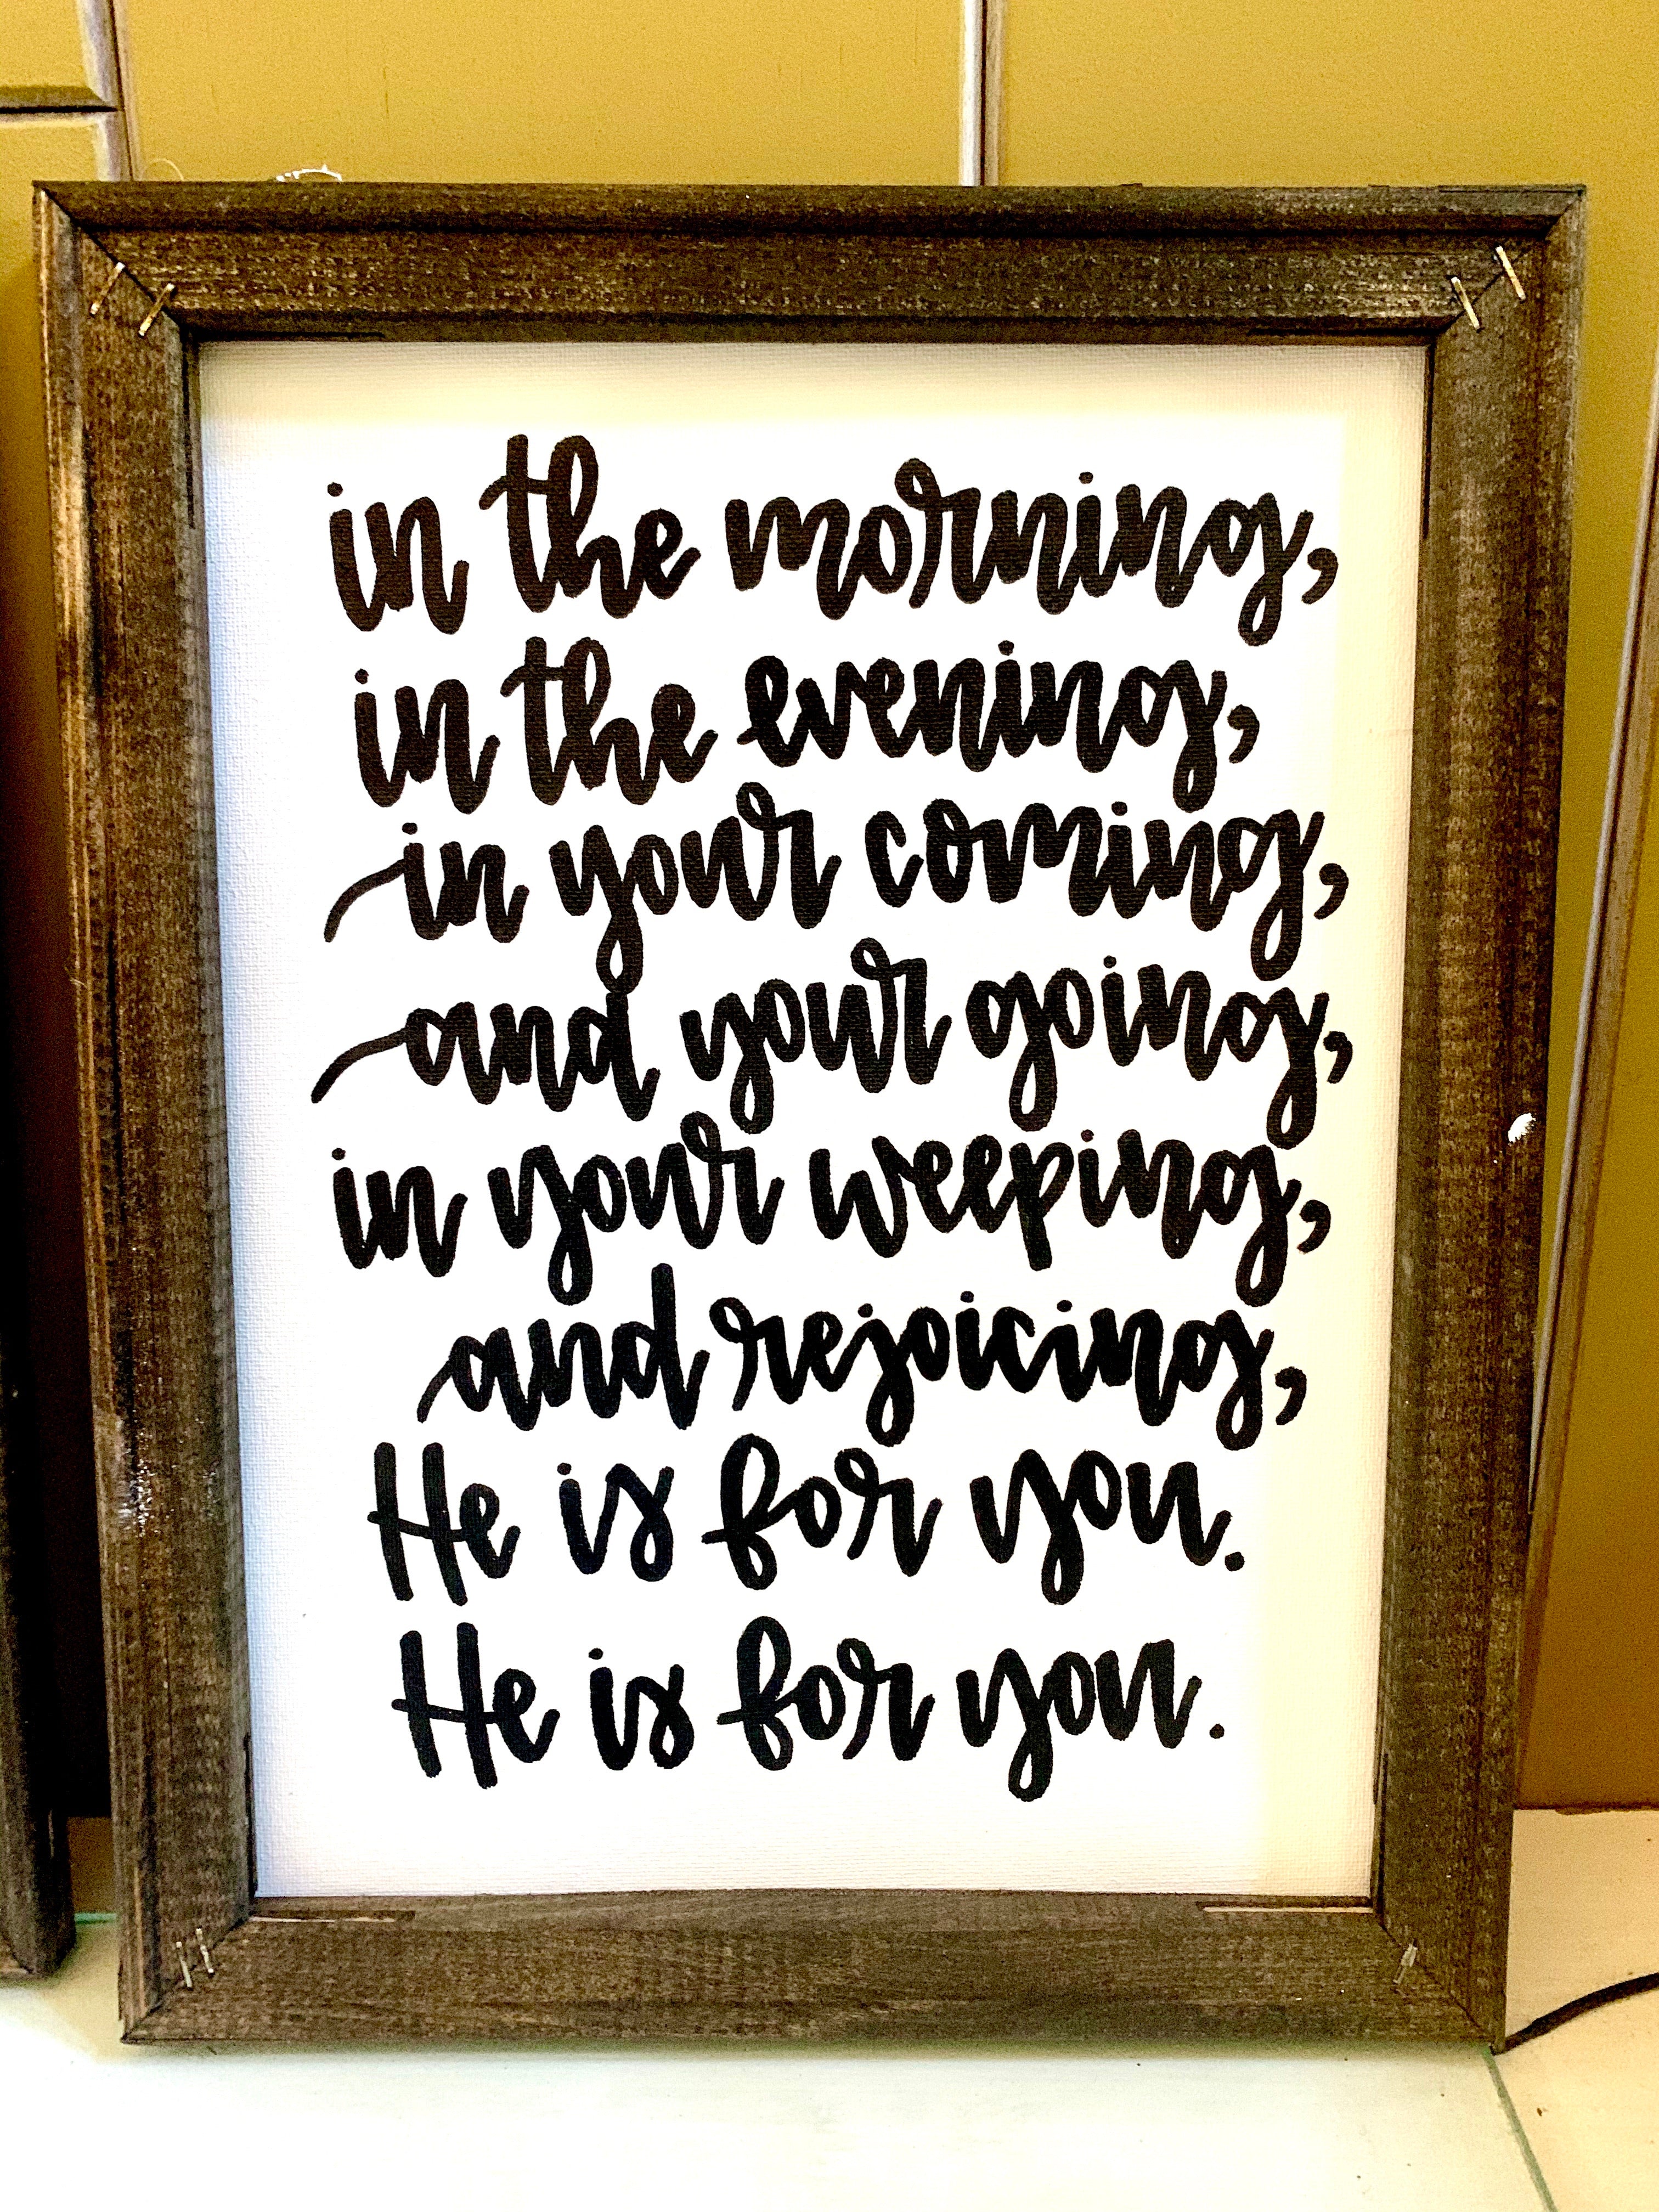 in the morning,
in the evening,
in your coming,
and your going,
in your weeping,
and rejoicing,
He is for you.
He is for you.